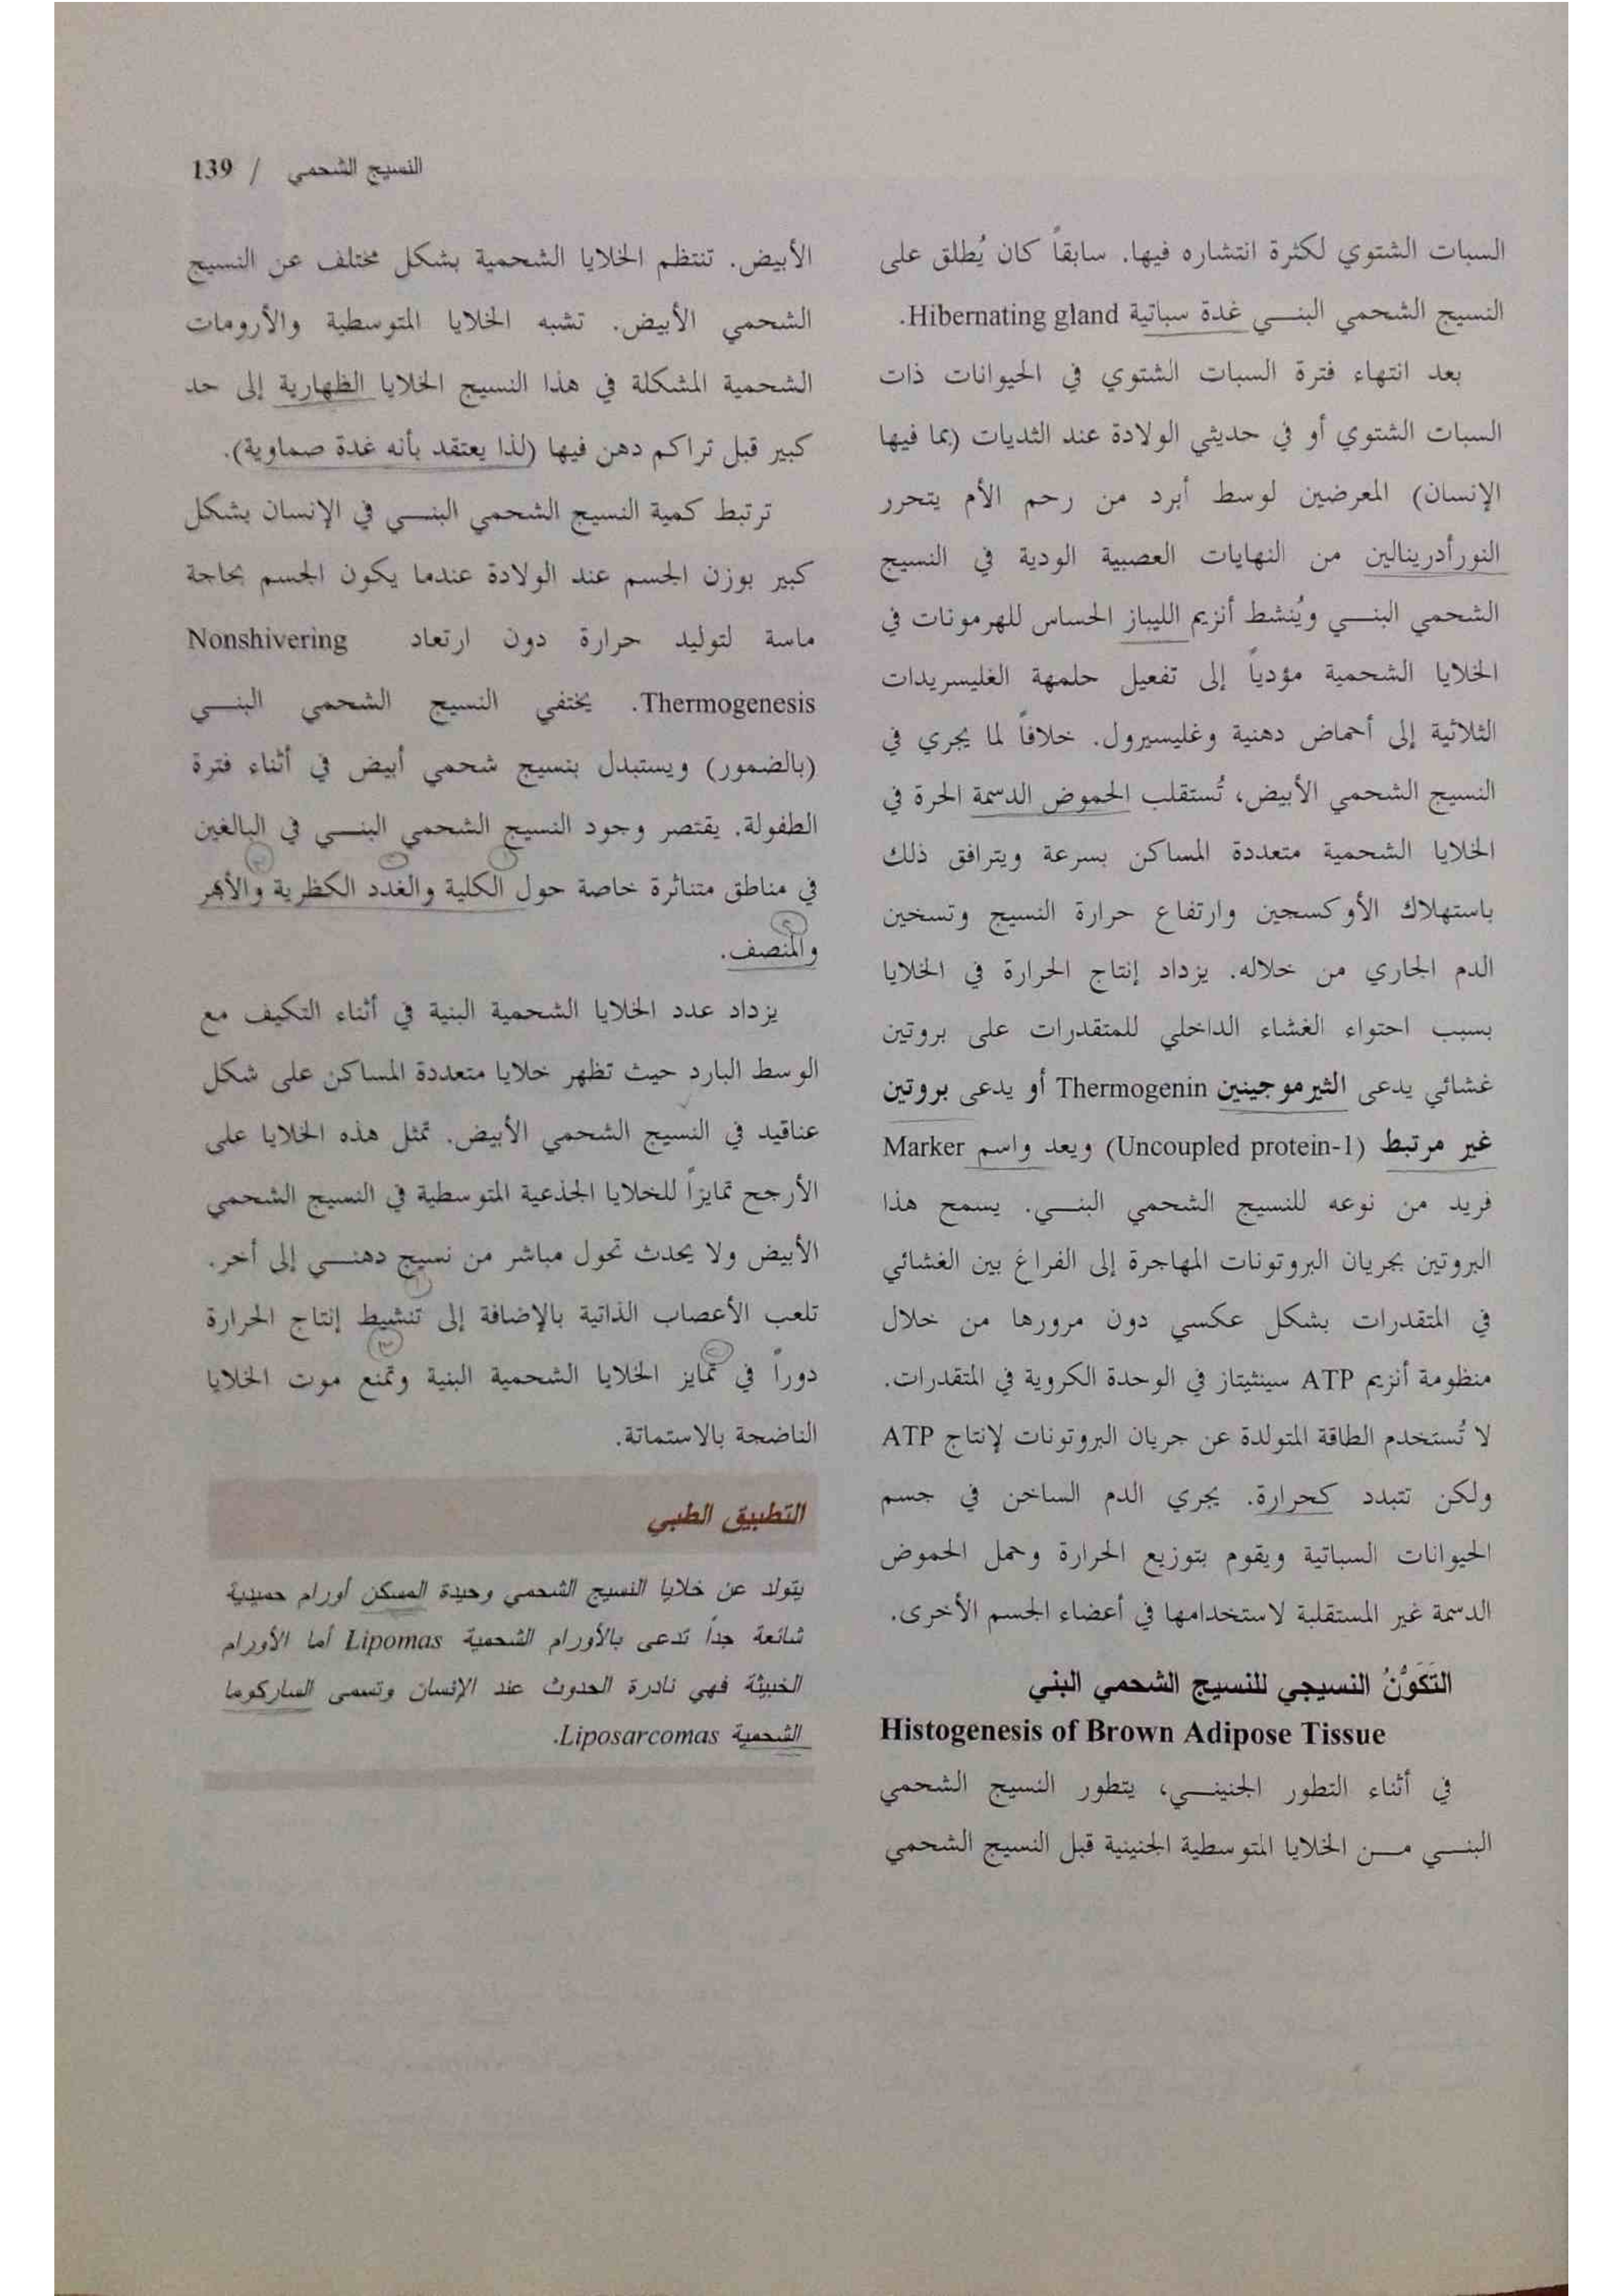 النسيج الشحمي / 139
السبات الشتوي لكثرة انتشاره فيها. سابقاً كان يُطلق على
النسيج الشحمي البني غدة سباتية Hibernating gland.
بعد انتهاء فترة السبات الشتوي في الحيوانات ذات
السبات الشتوي أو في حديثي الولادة عند الثديات (بما فيها
الإنسان) المعرضين لوسط أبرد من رحم الأم يتحرر
النورأدرينالين من النهايات العصبية الودية في النسيج
الشحمي البني ويُنشط أنزيم الليباز الحساس للهرمونات في
الخلايا الشحمية مؤدياً إلى تفعيل حلمهة الغليسريدات
الثلاثية إلى أحماض دهنية وغليسيرول. خلافاً لما يجري في
النسيج الشحمي الأبيض، تُستقلب الحموض الدسمة الحرة في
الخلايا الشحمية متعددة المساكن بسرعة ويترافق ذلك
باستهلاك الأوكسجين وارتفاع حرارة النسيج وتسخين
الدم الجاري من خلاله. يزداد إنتاج الحرارة في الخلايا
بسبب احتواء الغشاء الداخلي للمتقدرات على بروتين
غشائي يدعى الثيرموجينين Thermogenin أو يدعى بروتين
غير مرتبط (Uncoupled protein-1) ويعد واسم Marker
فريد من نوعه للنسيج الشحمي البني. يسمح هذا
البروتين بجريان البروتونات المهاجرة إلى الفراغ بين الغشائي
في المتقدرات بشكل عكسي دون مرورها من خلال
منظومة أنزيم ATP سينثيتاز في الوحدة الكروية في المتقدرات.
لا تُستخدم الطاقة المتولدة عن جريان البروتونات لإنتاج ATP
ولكن تتبدد كحرارة. يجري الدم الساخن في جسم
الحيوانات السباتية ويقوم بتوزيع الحرارة وحمل الحموض
الدسمة غير المستقلبة لاستخدامها في أعضاء الجسم الأخرى.
التَكَوُّنُ النسيجي للنسيج الشحمي البني
Histogenesis of Brown Adipose Tissue
في أثناء التطور الجنيني، يتطور النسيج الشحمي
البني من الخلايا المتوسطية الجنينية قبل النسيج الشحمي
الأبيض. تنتظم الخلايا الشحمية بشكل مختلف عن النسيج
الشحمي الأبيض. تشبه الخلايا المتوسطية والأرومات
الشحمية المشكلة في هذا النسيج الخلايا الظهارية إلى حد
كبير قبل تراكم دهن فيها (لذا يعتقد بأنه غدة صماوية).
ترتبط كمية النسيج الشحمي البني في الإنسان بشكل
كبير بوزن الجسم عند الولادة عندما يكون الجسم بحاجة
ماسة لتوليد حرارة دون ارتعاد Nonshivering
Thermogenesis. يختفي النسيج الشحمي البني
(بالضمور) ويستبدل بنسيج شحمي أبيض في أثناء فترة
الطفولة. يقتصر وجود النسيج الشحمي البني في البالغين
في مناطق متناثرة خاصة حول الكلية والغدد الكظرية والأبهر
والمنصف.
يزداد عدد الخلايا الشحمية البنية في أثناء التكيف مع
الوسط البارد حيث تظهر خلايا متعددة المساكن على شكل
عناقيد في النسيج الشحمي الأبيض. تمثل هذه الخلايا على
الأرجح تمايزاً للخلايا الجذعية المتوسطية في النسيج الشحمي
الأبيض ولا يحدث تحول مباشر من نسيج دهني إلى أخر.
تلعب الأعصاب الذاتية بالإضافة إلى تنشيط إنتاج الحرارة
دوراً في تمايز الخلايا الشحمية البنية وتمنع موت الخلايا
الناضجة بالاستماتة.
التطبيق الطبي
يتولد عن خلايا النسيج الشحمي وحيدة المسكن أورام حميدية
شائعة جداً تدعى بالأورام الشحمية Lipomas أما الأورام
الخبيثة فهي نادرة الحدوث عند الإنسان وتسمى الساركوما
الشحمية Liposarcomas.